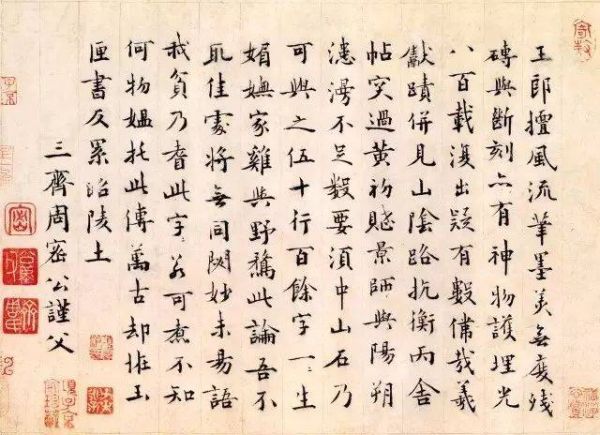 王郎擅風流筆墨美無度殘
磚與斷刻亦有神物護埋光
八百載復出疑有數偉哉羲
獻蹟併見山陰路抗衡丙舍
帖突過黃初賦景師與陽朔
漶漫不足數要須中山石乃
可與之伍十行百餘字一〻生
媚嫵家雞與野鶩此論吾不
取佳處將無同閟妙未易語
我貧乃耆此字〻若可煮不知
何物媼托此傳萬古却恠玉
匣書反累昭陵土
三齊周密公謹父